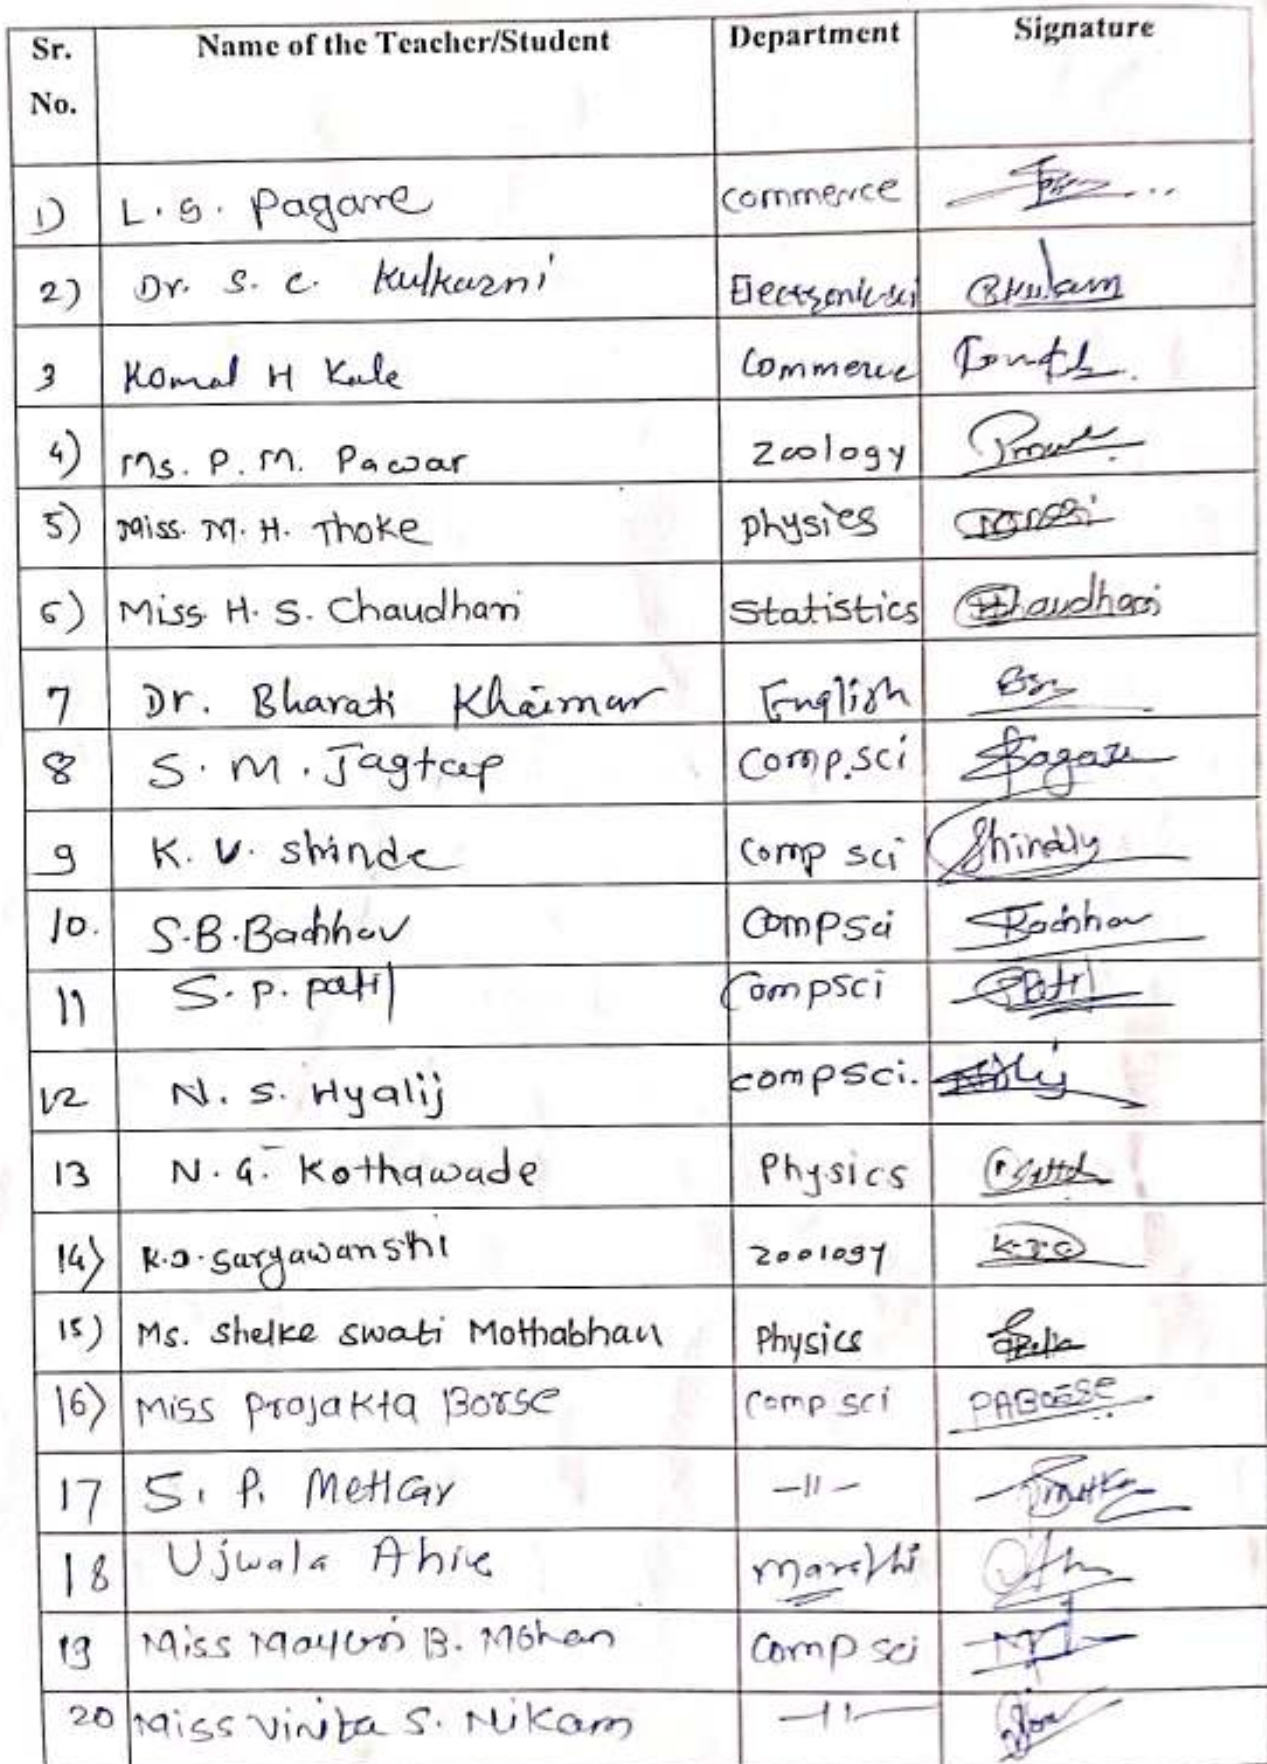 Sr. No. Name of the Teacher/Student Department Signature
1) L. S. Pagare commerce
2) Dr. S. C. Kulkarni Electronic sci
3 Komal H Kale Commerce
4) Ms. P. M. Pawar Zoology
5) Miss. M. H. Thoke physics
6) Miss H. S. Chaudhari Statistics Chaudhari
7 Dr. Bharati Khairnar English
8 S. M. Jagtap Comp.sci
9 K. V. shinde Comp sci
10. S.B.Bachhav Compsci Bachhav
11 S. P. patil Compsci Patil
12 N. S. Hyalij compsci.
13 N. G. Kothawade Physics
14) K.J. Suryawanshi Zoology
15) Ms. Shelke Swati Mothabhau Physics
16) Miss Prajakta Borse Comp sci PABorse
17 S. P. Metkar -11-
18 Ujwala Ahire Marathi
19 Miss Mayuri B. Mohan Comp sci
20 Miss Vinita S. Nikam -11-